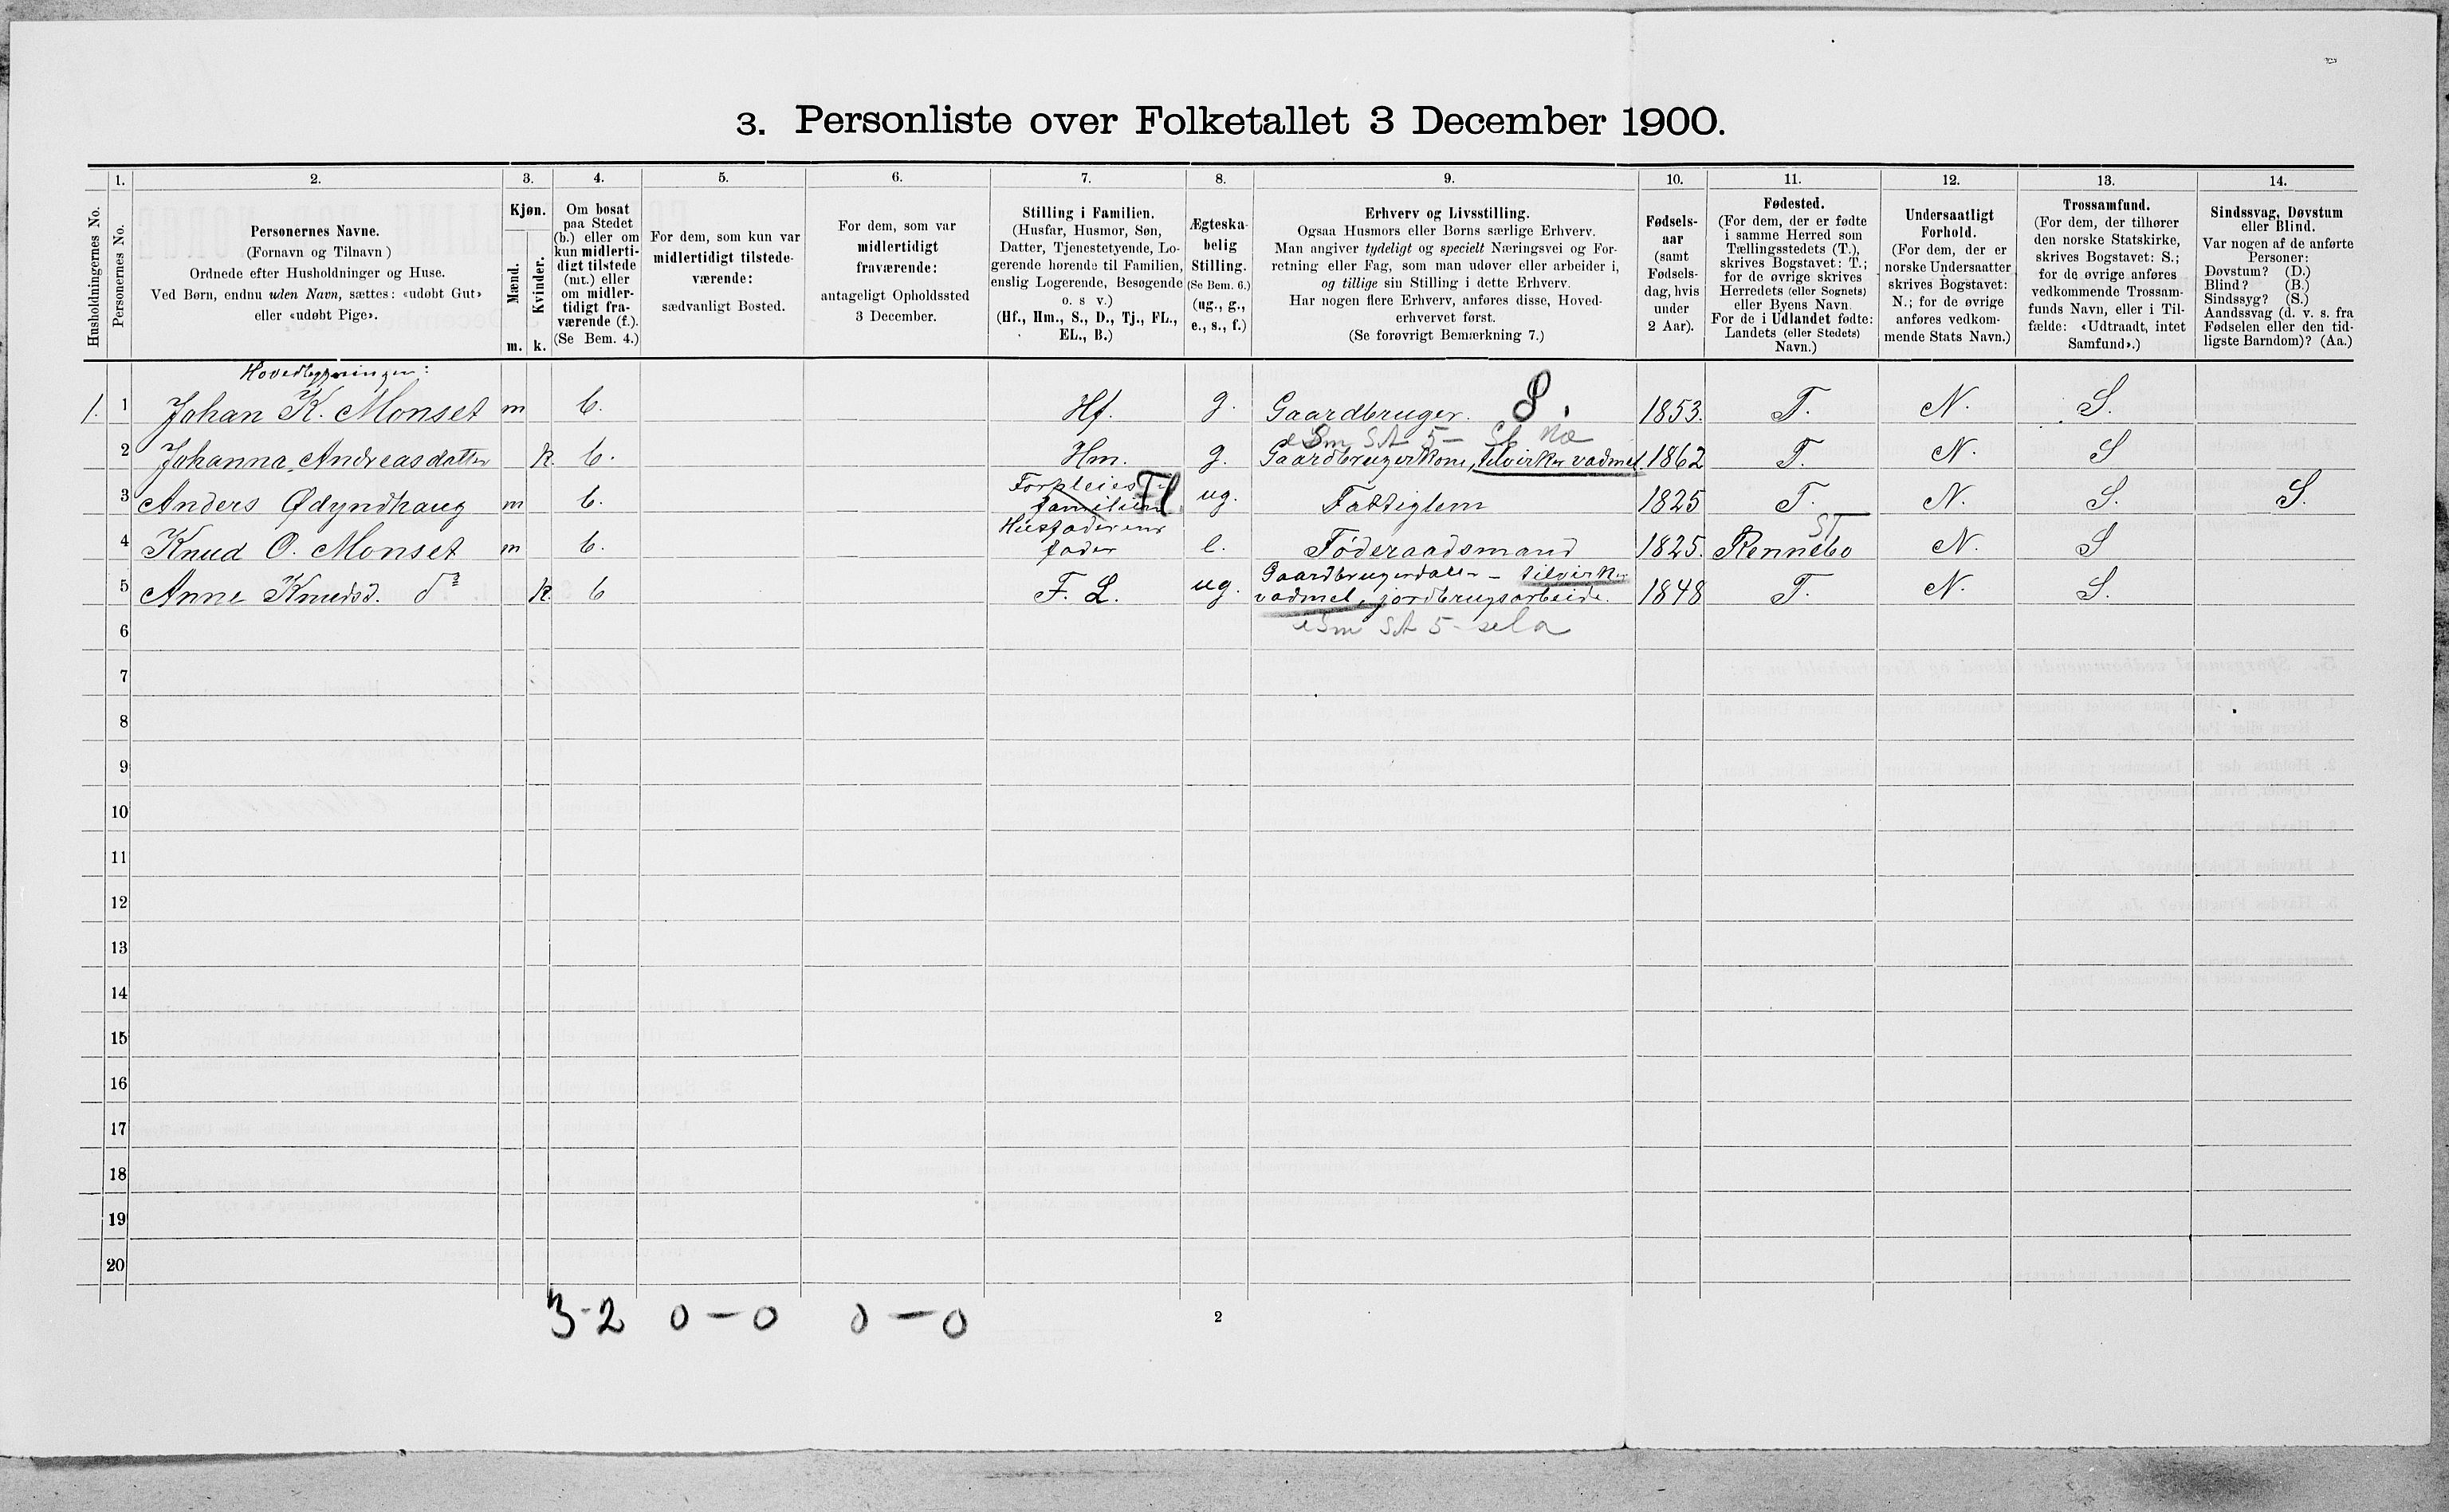 3. Personliste over Folketallet 3 December 1900.
Husholdningernes No.
1.
Personernes No.
2.
Personernes Navne.
(Fornavn og Tilnavn)
Ordnede efter Husholdninger og Huse.
Ved Børn, endnu uden Navn, sættes: «udøbt Gut»
eller «udøbt Pige».
3.
Kjøn.
Mænd.
Kvinder.
m. k.
4.
Om bosat
paa Stedet
(b.) eller om
kun midlerti-
digt tilstede
(mt.) eller
om midler-
tidigt fra-
værende (f.).
(Se Bem. 4.)
5.
For dem, som kun var
midlertidigt tilstede-
værende:
sædvanligt Bosted.
6.
For dem, som var
midlertidigt
fraværende:
antageligt Opholdssted
3 December.
7.
Stilling i Familien.
(Husfar, Husmor, Søn,
Datter, Tjenestetyende, Lo-
gerende hørende til Familien,
enslig Logerende, Besøgende
o. s v.)
(Hf., Hm., S., D., Tj., FL.,
EL., B.)
8.
Ægteska-
belig
Stilling.
(Se Bem. 6.)
(ug., g.,
e., s., f.)
9.
Erhverv og Livsstilling.
Ogsaa Husmors eller Børns særlige Erhverv.
Man angiver tydeligt og specielt Næringsvei og For-
retning eller Fag, som man udøver eller arbeider i,
og tillige sin Stilling i dette Erhverv.
Har nogen flere Erhverv, anføres disse, Hoved-
erhvervet først.
(Se forøvrigt Bemærkning 7.)
10.
Fødsels-
aar
(samt
Fødsels-
dag, hvis
under
2 Aar).
11.
Fødested.
(For dem, der er fødte
i samme Herred som
Tællingsstedets (T.),
skrives Bogstavet: T.;
for de øvrige skrives
Herredets (eller Sognets)
eller Byens Navn.
For de i Udlandet fødte:
Landets (eller Stedets)
Navn.)
12.
Undersaatligt
Forhold.
(For dem, der er
norske Undersaatter,
skrives Bogstavet:
N.; for de øvrige
anføres vedkom-
mende Stats Navn.)
13.
Trossamfund.
(For dem, der tilhører
den norske Statskirke,
skrives Bogstavet: S.;
for de øvrige anføres
vedkommende Trossam-
funds Navn, eller i Til-
fælde: «Udtraadt, intet
Samfund».)
14.
Sindssvag, Døvstum
eller Blind.
Var nogen af de anførte
Personer:
Døvstum? (D.)
Blind? (B.)
Sindssyg? (S.)
Aandssvag (d. v. s. fra
Fødselen eller den tid-
ligste Barndom)? (Aa.)
Hovedbygningen:
1. 1 Johan K. Monset m b. Hf. g. Gaardbruger. 8. 1853. T. N. S.
2 Johanna Andreasdatter k. b. Hm. g. Gaardbrugerkone, tilvirker vadmel. 1862 T. N. S
3 Anders Ødyndhaug m b. Forpleies i familien Fl. ug. Fattiglem 1825 T. N. S. S.
4 Knud O. Monset m b. Husfaderens fader e. Føderaadsmand 1825. Rennebo N. S
5 Anne Knudsd. do k. b F. L. ug. Gaardbrugerdatter - tilvirker
vadmel, jordbrugsarbeide. 1848 T. N. S.
6
7
8
9
10
11
12
13
14
15
16
17
18
19
20
3-2 0-0 0-0
2